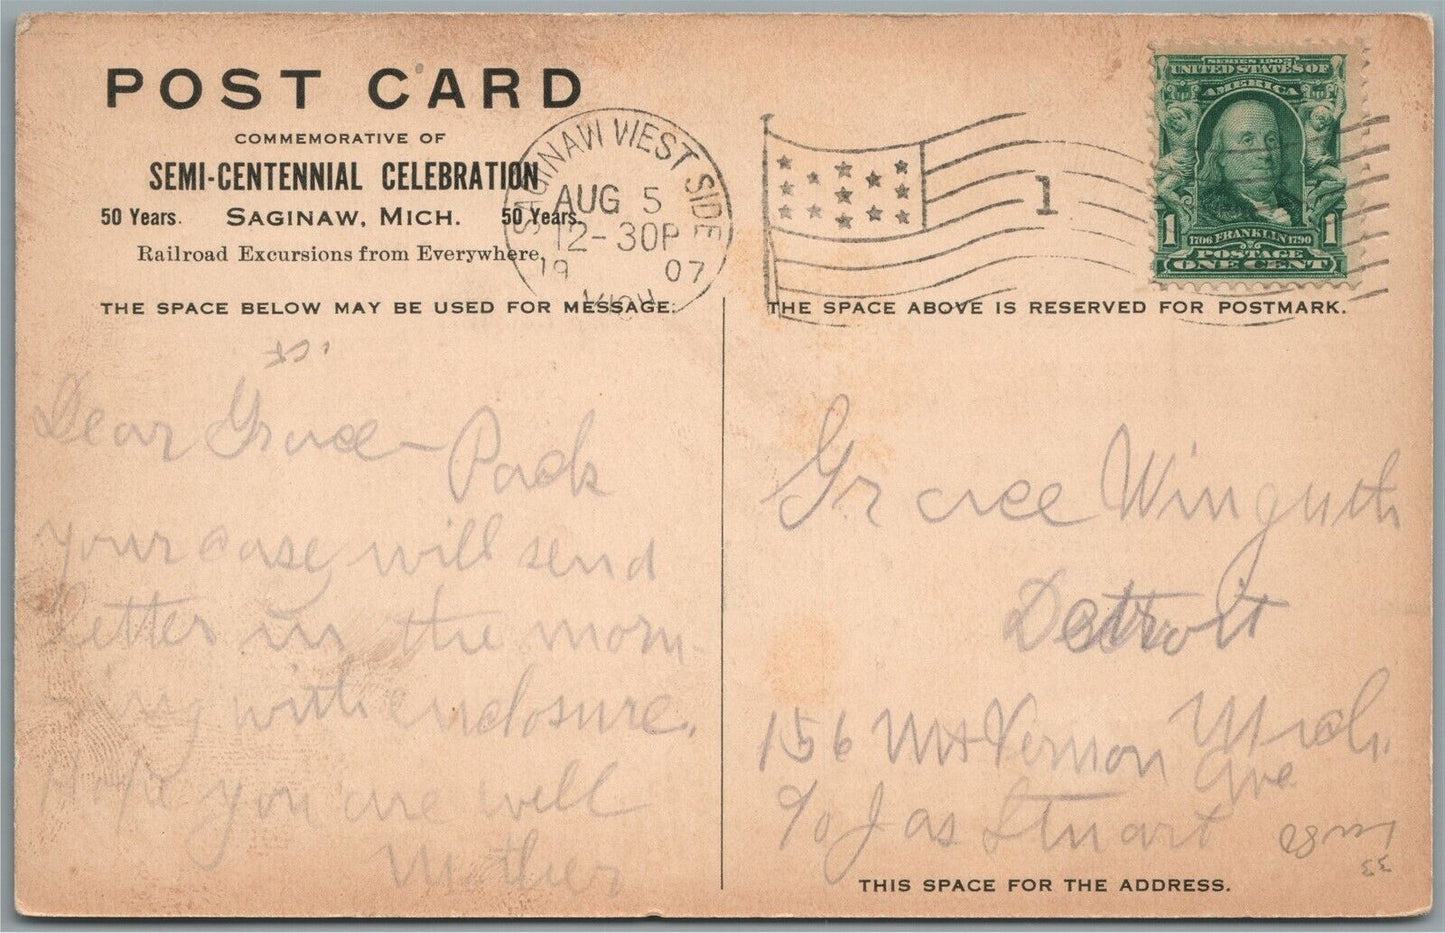 POST CARD
COMMEMORATIVE OF
SEMI-CENTENNIAL CELEBRATION
50 Years. SAGINAW, MICH. 50 Years.
Railroad Excursions from Everywhere.
THE SPACE BELOW MAY BE USED FOR MESSAGE.
SAGINAW WEST SIDE
AUG 5
12-30P
19 07
MICH
1
SERIES 1902
UNITED STATES OF
AMERICA
1 1
1706 FRANKLIN 1790
POSTAGE
ONE CENT
THE SPACE ABOVE IS RESERVED FOR POSTMARK.
Dear Grace - Pack
your case, will send
letter in the morn-
ing with enclosure.
Hope you are well
Mother
Grace Winguth
Detroit
Mich.
156 Mt Vernon Ave
c/o Jas Stuart
THIS SPACE FOR THE ADDRESS.